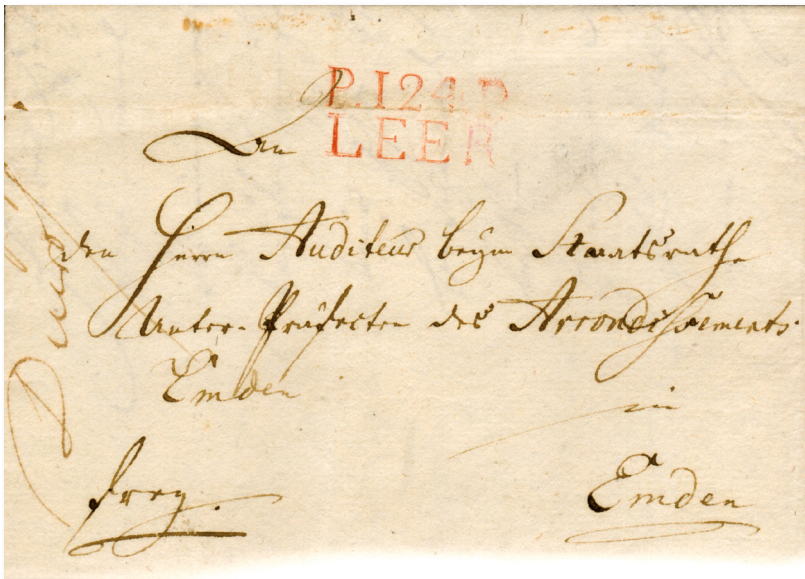 P.124.P.
LEER
An
den Herrn Auditeur beym Staatsrathe
Unter-Präfecten des Arrondissements
Emden
in
frey.
Emden